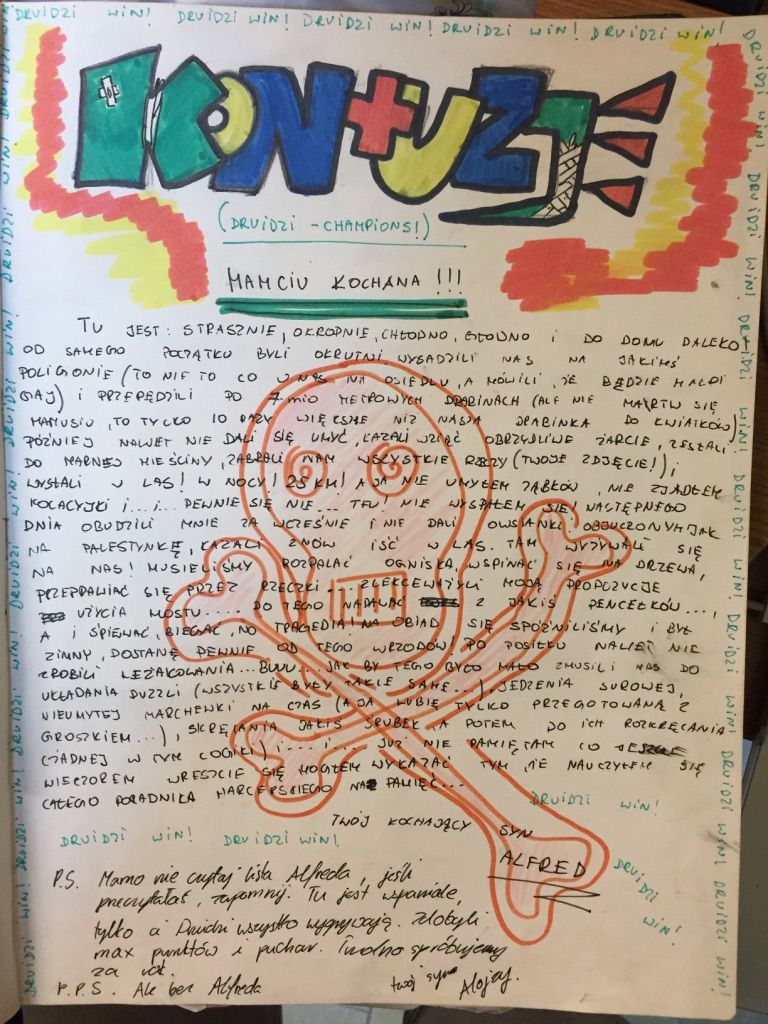 DRUIDZI WIN! DRUIDZI WIN! DRUIDZI WIN! DRUIDZI WIN! DRUIDZI WIN!
KONTUZJE
(DRUIDZI - CHAMPIONS!)
MAMCIU KOCHANA !!!
TU JEST: STRASZNIE, OKROPNIE, CHŁODNO, GŁODNO I DO DOMU DALEKO.
OD SAMEGO POCZĄTKU BYLI OKRUTNI, WYSADZILI NAS NA JAKIMŚ
POLIGONIE (TO NIE TO CO U NAS NA OSIEDLU, A MÓWILI, ŻE BĘDZIE MAŁPI
GAJ) I PRZEPĘDZILI PO 7-MIO METROWYCH DRABINACH (ALE NIE MARTW SIĘ
MAMUSIU, TO TYLKO 10 RAZY WIĘKSZE NIŻ NASZA DRABINKA DO KWIATKÓW)
PÓŹNIEJ NAWET NIE DALI SIĘ UMYĆ, KAZALI WZIĄĆ OBRZYDLIWE ŻARCIE, ZESŁALI
DO MARNEJ MIEŚCINY, ZABRALI NAM WSZYSTKIE RZECZY (TWOJE ZDJĘCIE!), I
WYSŁALI W LAS! W NOCY! 25 KM! A JA NIE UMYŁEM ZĄBKÓW, NIE ZJADŁEM
KOLACYJKI I... I... PEWNIE SIĘ NIE... TFU! NIE WYSPAŁEM SIĘ! NASTĘPNEGO
DNIA OBUDZILI MNIE ZA WCZEŚNIE I NIE DALI OWSIANKI. OBJUCZONYM JAK
NA PALESTYNKĘ, KAZALI ZNÓW IŚĆ W LAS. TAM WYŻYWALI SIĘ
NA NAS! MUSIELIŚMY ROZPALAĆ OGNISKA, WSPINAĆ SIĘ NA DRZEWA,
PRZEPRAWIAĆ SIĘ PRZEZ RZECZKI... ZLEKCEWAŻYLI MOJĄ PROPOZYCJE
UŻYCIA MOSTU..... DO TEGO NADAWAĆ Z JAKIŚ PENCETKÓW...,
A I ŚPIEWAĆ, BIEGAĆ, NO TRAGEDIA! NA OBIAD SIĘ SPÓŹNILIŚMY I BYŁ
ZIMNY, DOSTANĘ PEWNIE OD TEGO WRZODÓW! PO POSIŁKU NAWET NIE
ZROBILI LEŻAKOWANIA... BUUU.... JAK BY TEGO BYŁO MAŁO ZMUSILI NAS DO
UKŁADANIA PUZZLI (WSZYSTKIE BYŁY TAKIE SAME...), JEDZENIA SUROWEJ,
NIEUMYTEJ MARCHEWKI NA CZAS (A JA LUBIĘ TYLKO PRZEGOTOWANĄ Z
GROSZKIEM...), SKRĘCANIA JAKIŚ ŚRUBEK, A POTEM DO ICH ROZKRĘCANIA
(ŻADNEJ W TYM LOGIKI)..... I..... JUŻ NIE PAMIĘTAM CO JESZCZE
WIECZOREM WRESZCIE SIĘ MOGŁEM WYKAZAĆ TYM, ŻE NAUCZYŁEM SIĘ
CAŁEGO PORADNIKA HARCERSKIEGO NA PAMIĘĆ...
DRUIDZI WIN!
TWÓJ KOCHAJĄCY SYN
DRUIDZI WIN! DRUIDZI WIN!
ALFRED
DRUIDZI WIN!
P.S. Mamo nie czytaj listu Alfreda, jeśli
przeczytałaś, zapomnij. Tu jest wspaniale,
tylko a Druidzi wszystko wygrywają. Zdobyli
max punktów i puchar. Trudno spróbujemy
za rok.
twój syn Alojzy.
P.P.S. Ale bez Alfreda
DRUIDZI WIN! DRUIDZI WIN! DRUIDZI WIN! DRUIDZI WIN! DRUIDZI WIN! DRUIDZI WIN!
DRUIDZI WIN! DRUIDZI WIN! DRUIDZI WIN! DRUIDZI WIN! DRUIDZI WIN! DRUIDZI WIN!